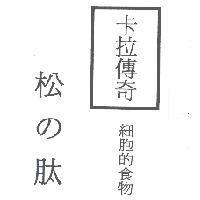 卡拉傳奇
細胞的食物
松の肽